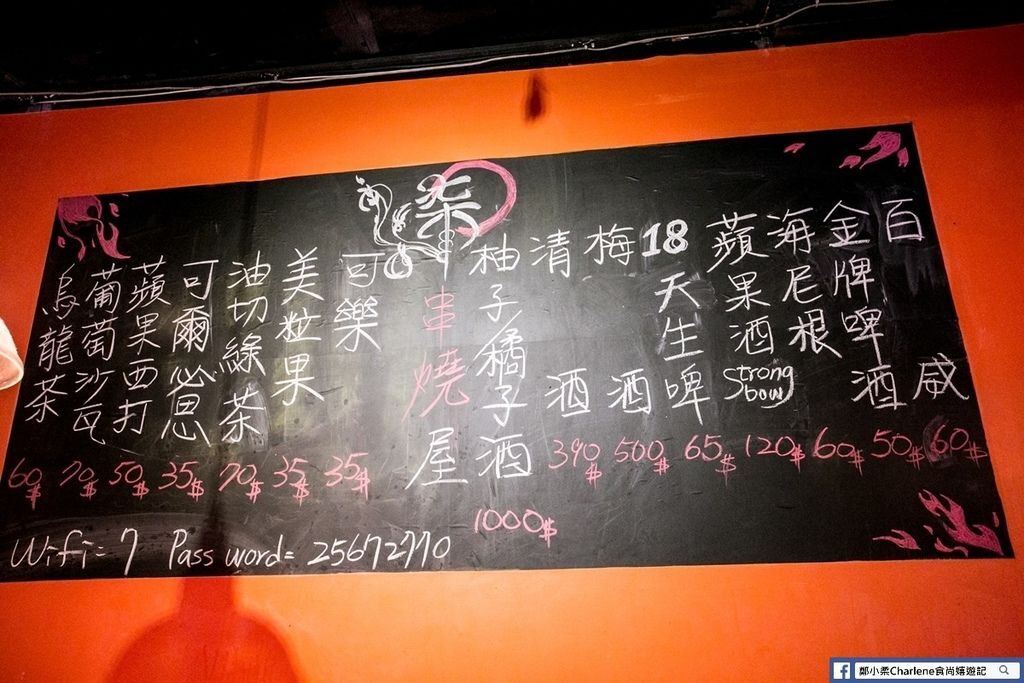 百威 60$
金牌啤酒 50$
海尼根 60$
蘋果酒 Strong bow 120$
18天生啤 65$
梅酒 500$
清酒 390$
柚子/橘子酒 1000$
柒
串燒屋
可樂 35$
美粒果 35$
油切綠茶 70$
可爾必思 35$
蘋果西打 50$
葡萄沙瓦 70$
烏龍茶 60$
Wifi=7 Pass word= 25672770
鄭小柔Charlene食尚嬉遊記